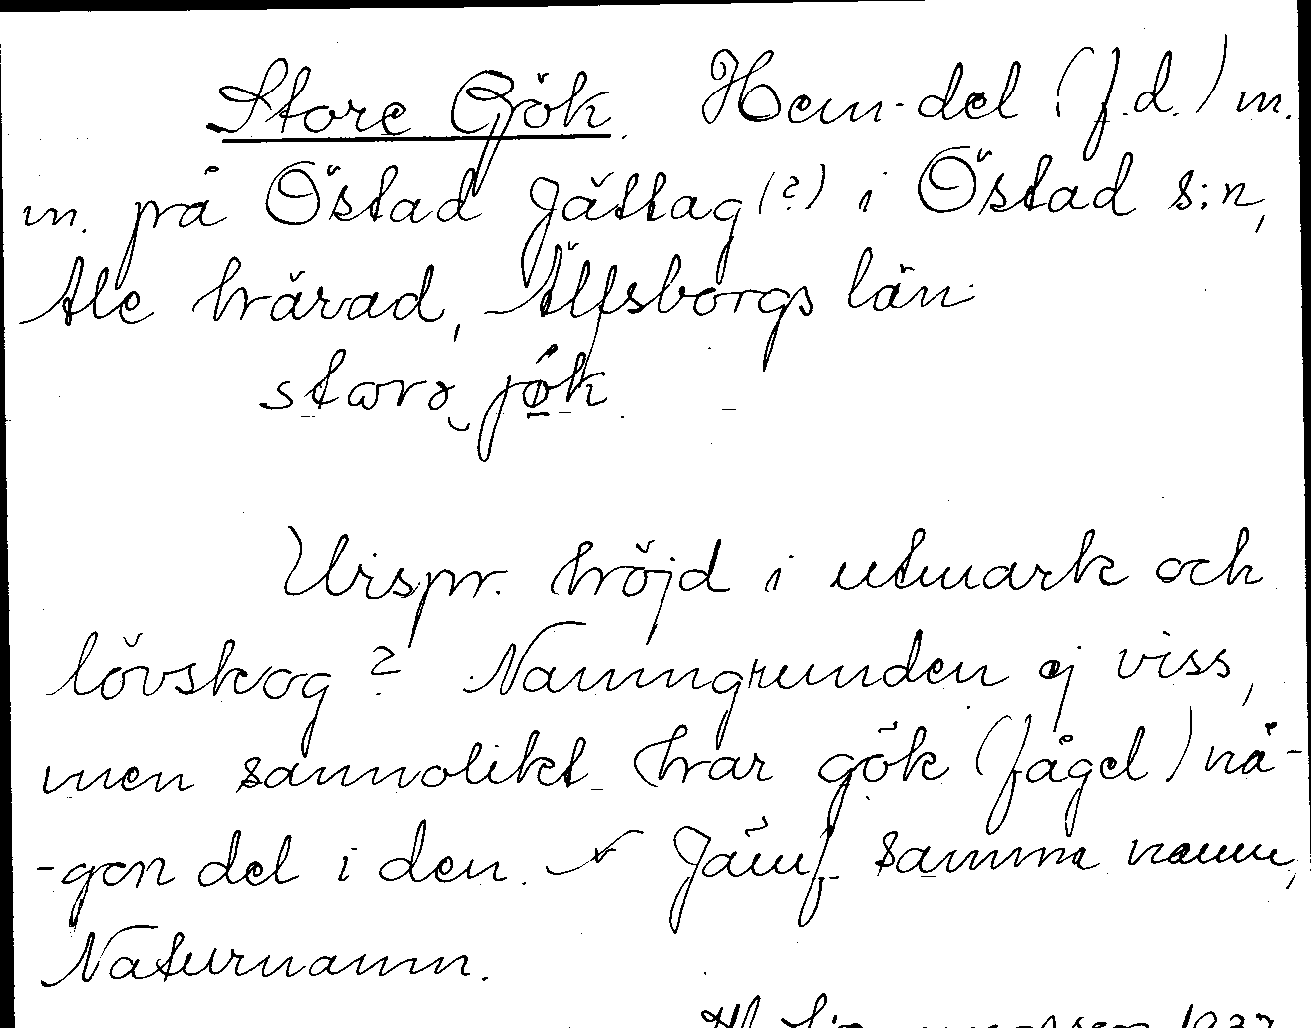 Store Gök. Hem-del (f.d.) m.
m. på Östad Jättag(?) i Östad s:n,
Ale härad, Älfsborgs län
jǿk
Urspr. höjd i utmark och
lövskog? Namngrunden ej viss,
men sannolikt har gök (fågel) nå-
-gon del i den. Jämf. samma namn,
Naturnamn.